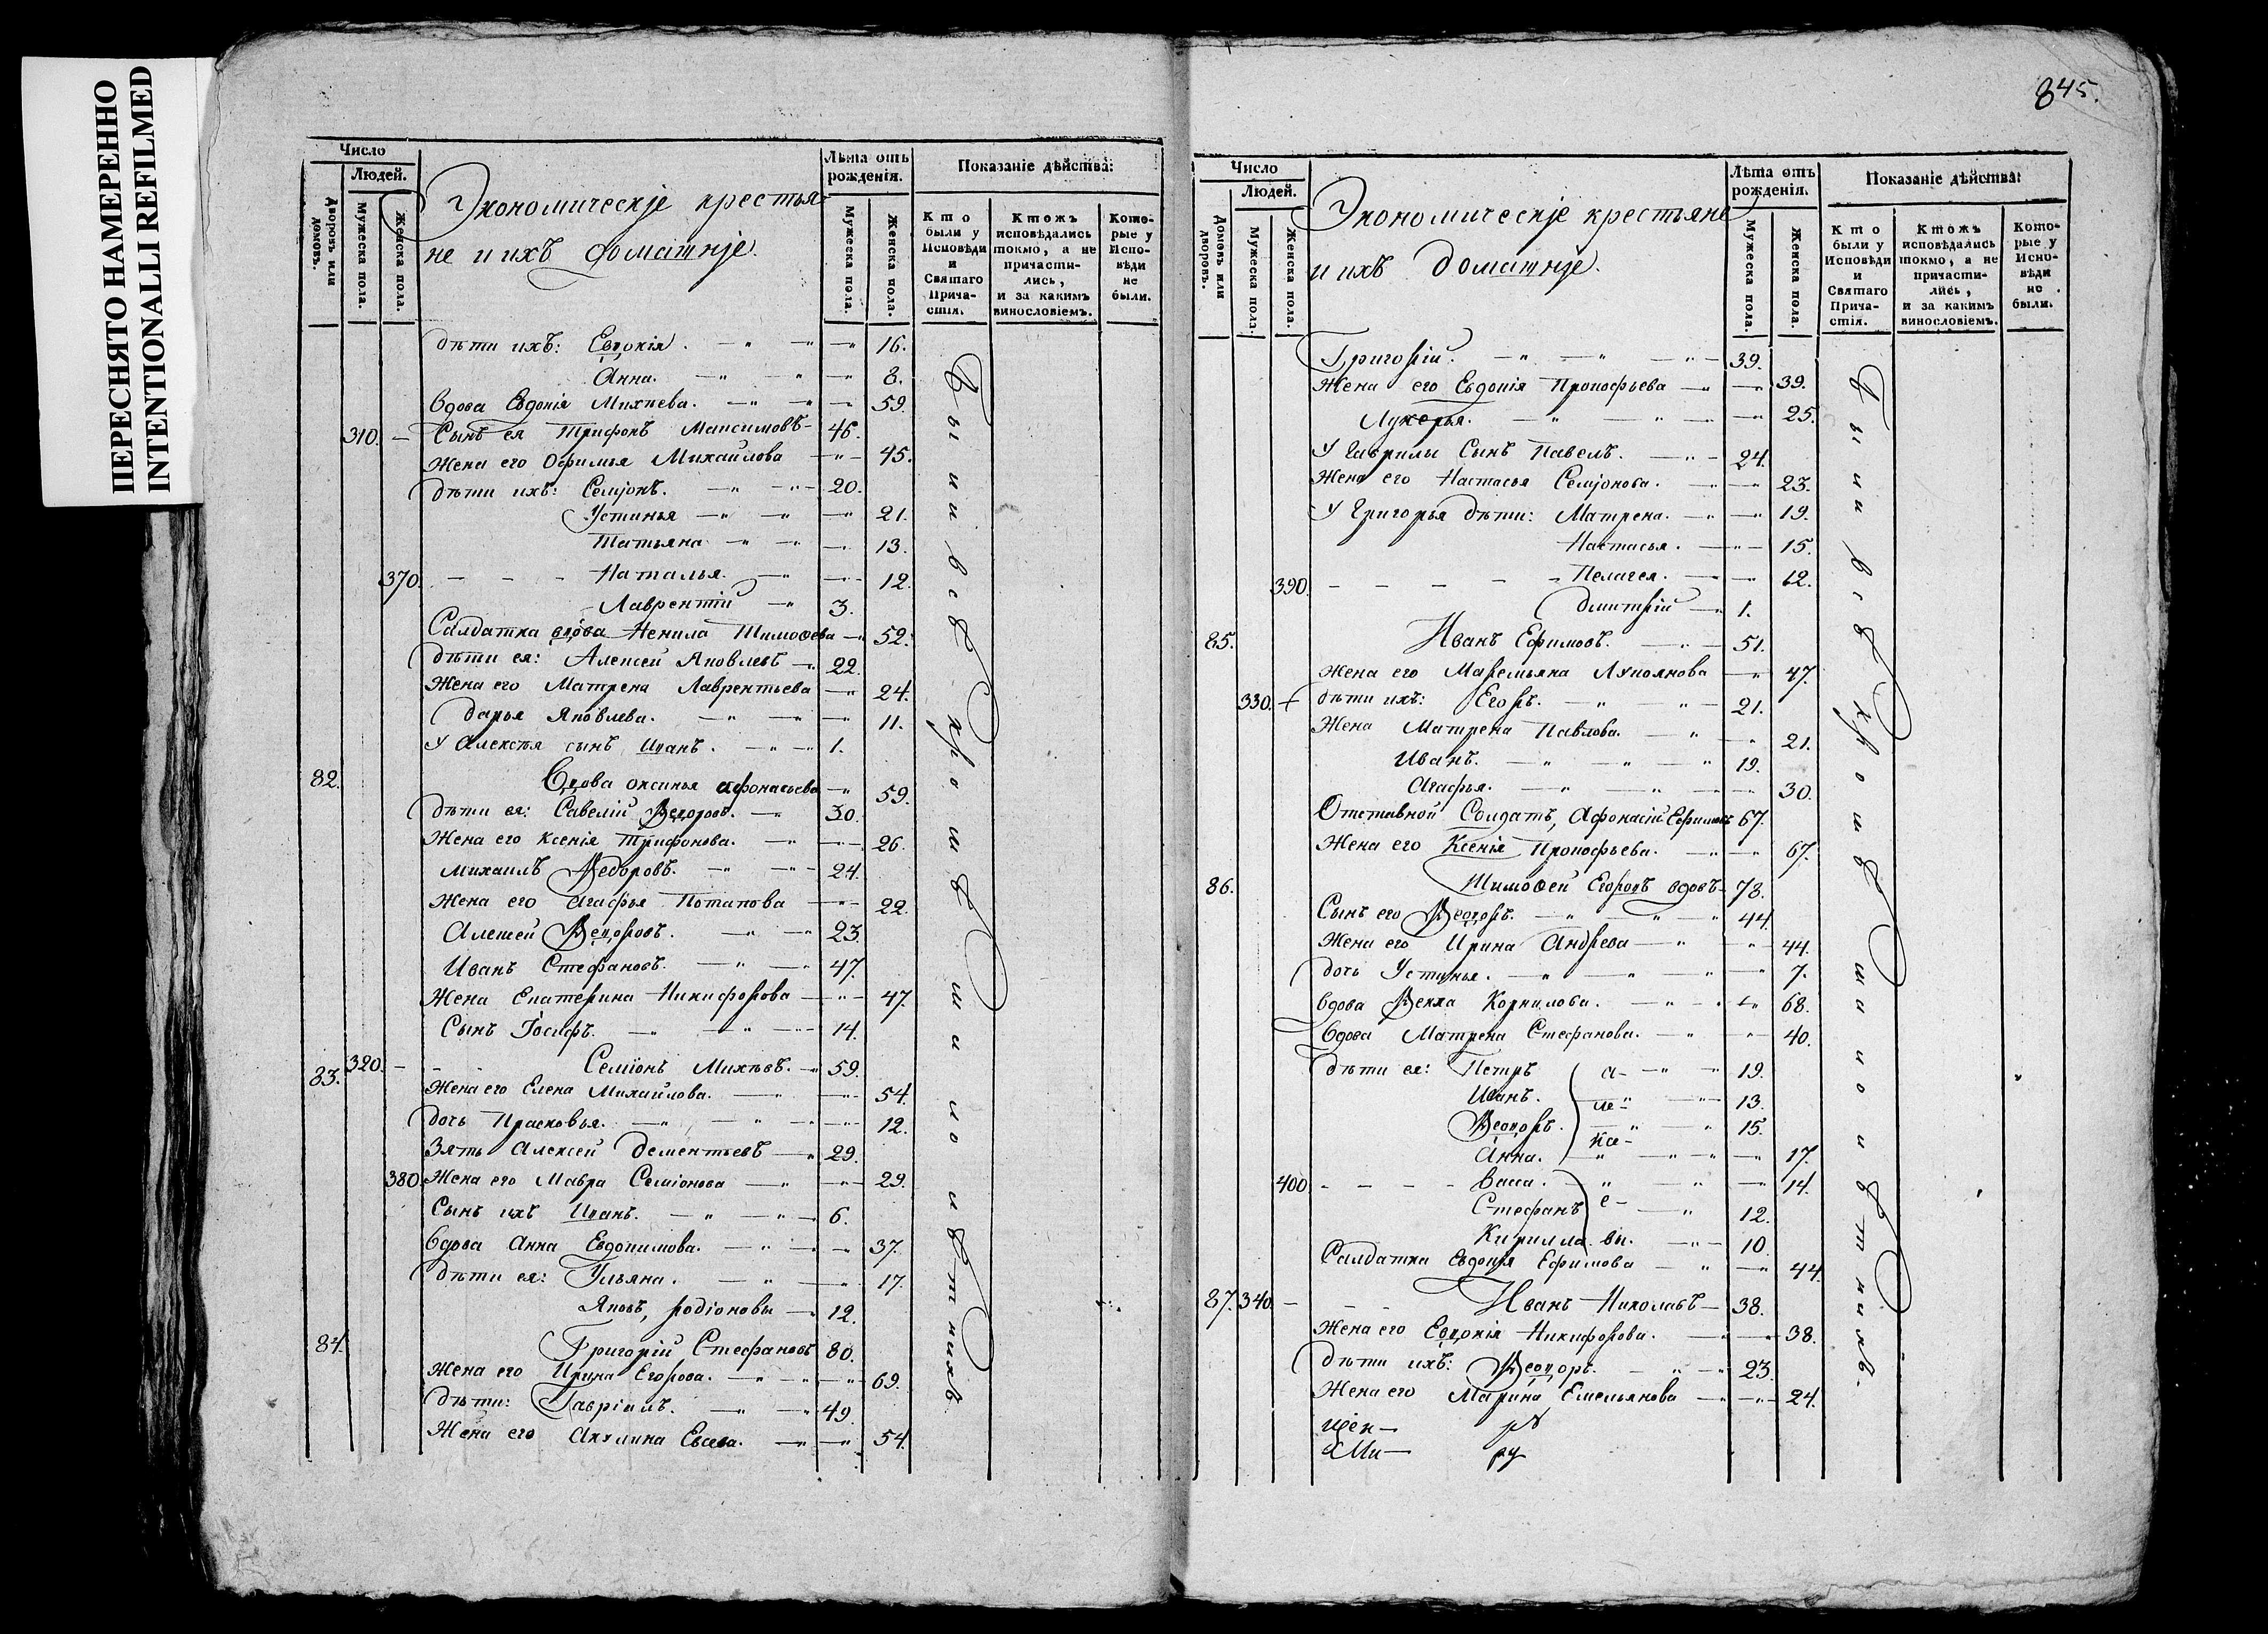 ПЕРЕСНЯТО НАМЕРЕННО
INTENTIONALLI REFILMED
Число
Людей.
Дворовъ или домовъ.
Мужеска пола.
Женска пола.
Экономическіе крестья-
не и ихъ домашніе.
Лѣта отъ рожденія.
Мужеска пола.
Женска пола.
Показаніе дѣйства:
Кто были у Исповѣди и Святаго Причастія.
Ктожъ исповѣдались токмо, а не причастились, и за какимъ винословіемъ.
Которые у Исповѣди не были.
дѣти ихъ: Евдокія. 16.
Анна. 8.
Вдова Евдокія Михѣева. 59.
310. Сынъ ея Трифонъ Максимовъ 46.
Жена его Офимья Михайлова 45.
дѣти ихъ: Семіонъ. 20.
Устинья 21.
Татьяна 13.
370. Наталья. 12.
Лаврентій 3.
Салдатка вдова Ненила Тимоѳеева 52.
дѣти ея: Алексей Яковлевъ 22.
Жена его Матрена Лаврентьева 24.
дарья Яковлева. 11.
У Алексѣя сынъ Иванъ. 1.
82. Вдова оксинья афонасьева 59.
дѣти ея: Савелій Ѳедоровъ. 30.
Жена его Ксенія Трифонова. 26.
михаилъ Ѳедоровъ. 24.
Жена его агафья Потапова 22.
Алексей Ѳедоровъ. 23.
Иванъ Стефановъ. 47.
Жена Екатерина Никифорова 47.
Сынъ Іосифъ. 14.
83. 320. Семіонъ Михѣевъ. 59.
Жена его Елена Михайлова. 54.
дочь Прасковья. 12.
Зять Алексей дементьевъ 29.
380. Жена его Мавра Семіонова 29.
Сынъ ихъ Иванъ. 6.
Вдова Анна Евдокимова. 37.
дѣти ея: Ульяна. 17.
Яковъ, родіоновы 12.
84. Григорій Стефановъ 80.
Жена его Ирина Егорова. 69.
дѣти: Гавріилъ. 49.
Жена его Акулина Евсева. 54.
Были всѣ кромѣ малолѣтнихъ
845.
Число
Людей.
Домовъ или дворовъ.
Мужеска пола.
Женска пола.
Экономическіе крестьяне
и ихъ домашніе.
Лѣта отъ рожденія.
Мужеска пола.
Женска пола.
Показаніе дѣйства:
Кто были у Исповѣди и Святаго Причастія.
Ктожъ исповѣдались токмо, а не причастились, и за какимъ винословіемъ.
Которые у Исповѣди не были.
Григорій. 39.
Жена его Евдокія Прокофьева 39.
Лукерья. 25.
У Гаврилы Сынъ Павелъ. 24.
Жена его Настасья Семіонова. 23.
У Григорья дѣти: Матрена. 19.
Настасья. 15.
390. Пелагея. 12.
дмитрій 1.
85. Иванъ Ефимовъ. 51.
Жена его Маремьяна Лукоянова 47.
330. дѣти ихъ: Егоръ. 21.
Жена Матрена Павлова. 21.
Иванъ. 19.
агафья. 30.
Отставной Солдатъ, Афонасій Ефимовъ 67.
Жена его Ксенія Прокофьева. 67.
86. Тимоѳей Егоровъ вдовъ 78.
Сынъ его Ѳедоръ. 44.
Жена его Ирина Андреева 44.
дочь Устинья. 7.
Вдова Ѳекла Корнилова. 68.
Вдова Матрена Стефанова. 40.
дѣти ея: Петръ а- 19.
Иванъ. ле- 13.
Ѳедоръ. кс- 15.
Анна. 17.
400. Васса. 14.
Стефанъ е- 12.
Кирилла вы. 10.
Салдатка евдокія Ефимова 44.
87. 340. Иванъ Николаевъ 38.
Жена его Евдокія Никифорова. 38.
дѣти ихъ: Ѳедоръ. 23.
Жена его Марина Емельянова 24.
Были всѣ кромѣ малолѣтнихъ.